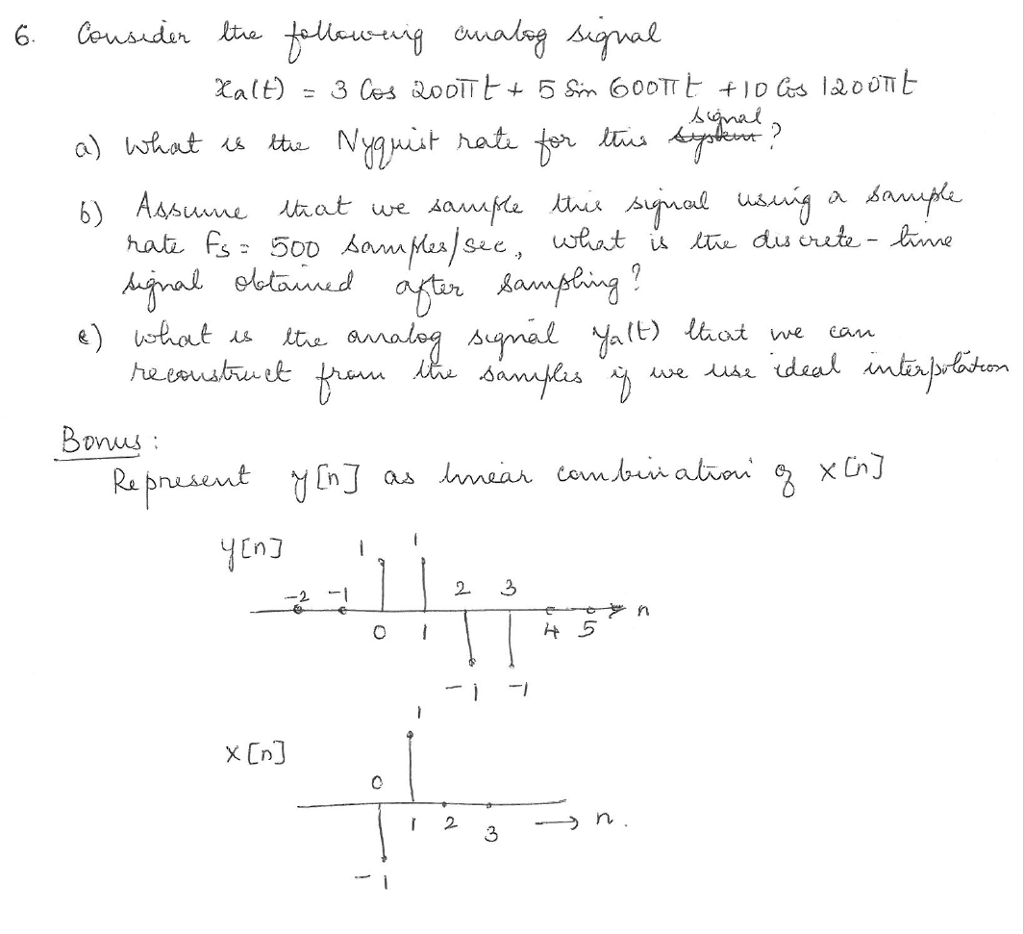 6. Consider the following analog signal
xa(t) = 3 Cos 200πt + 5 Sin 600πt + 10 Cos 1200πt
signal
a) What is the Nyquist rate for this system?
b) Assume that we sample this signal using a sample
rate Fs = 500 samples/sec, what is the discrete-time
signal obtained after sampling?
c) What is the analog signal ya(t) that we can
reconstruct from the samples if we use ideal interpolation
Bonus:
Represent y[n] as linear combination of x[n]
y[n] 1 1
-2 -1 2 3
0 1 4 5 n
-1 -1
1
x[n]
0
1 2 3 → n.
-1